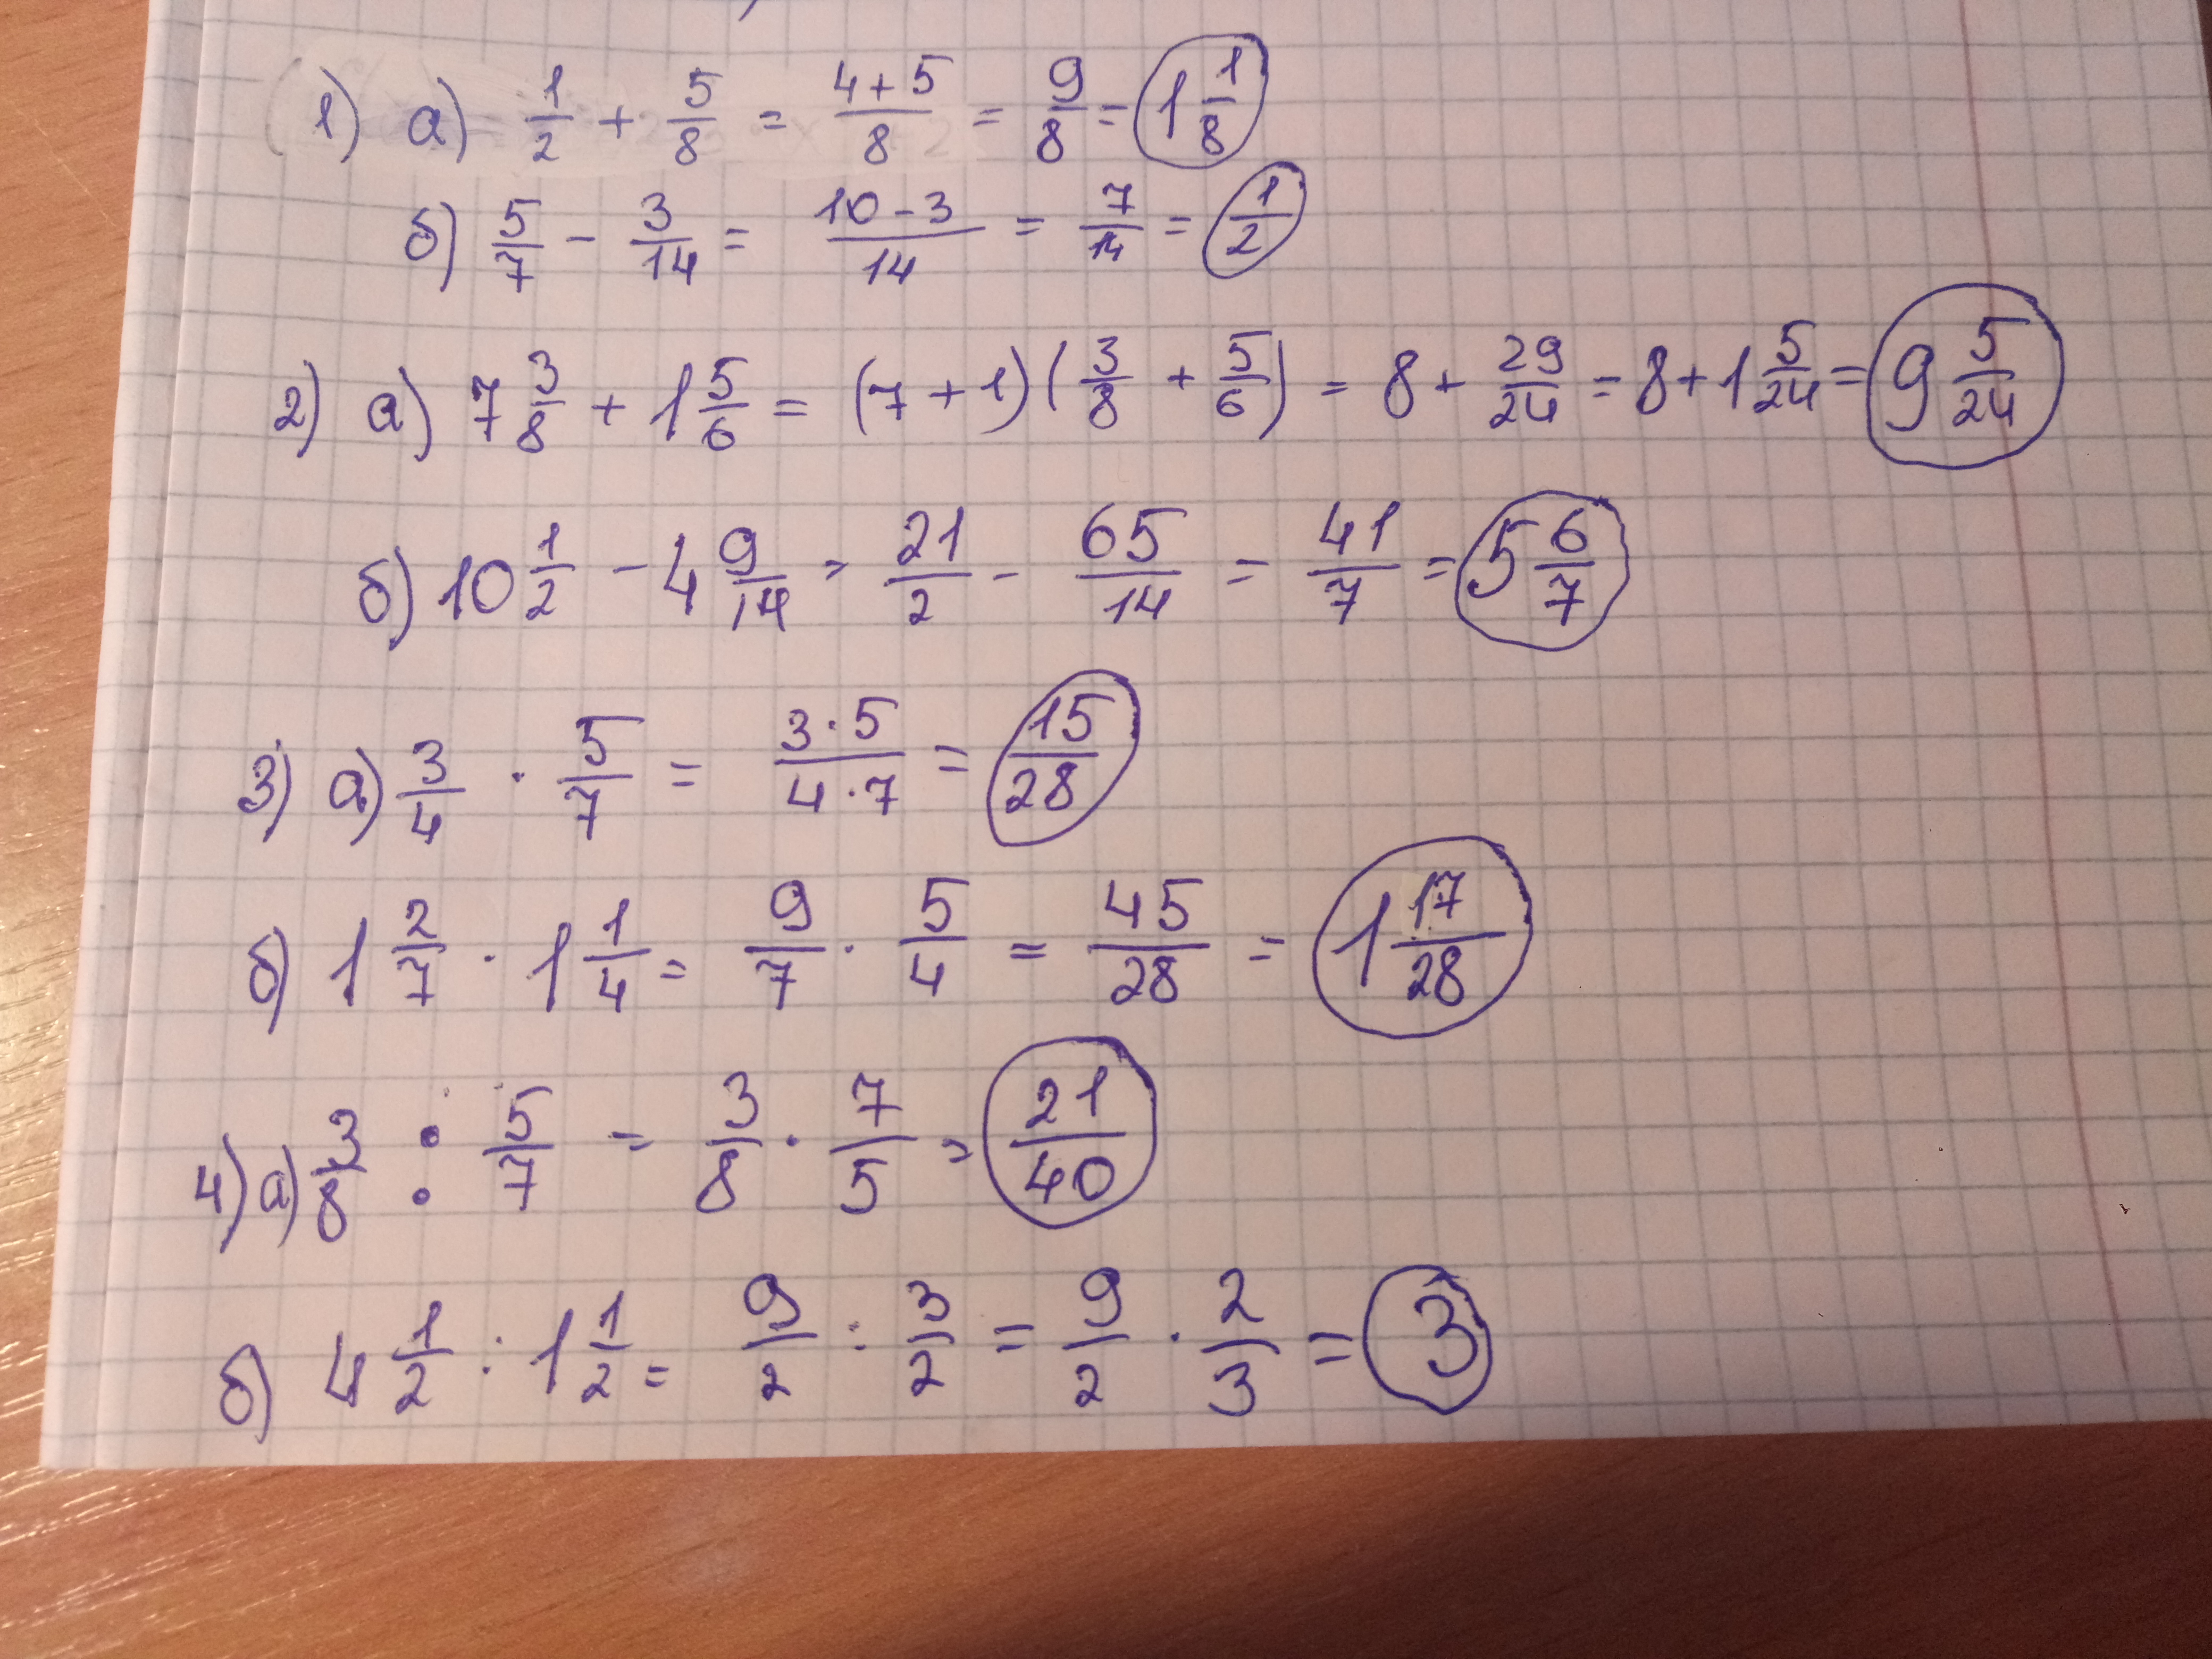 1) а) 1/2 + 5/8 = (4+5)/8 = 9/8 = 1 1/8
б) 5/7 - 3/14 = (10-3)/14 = 7/14 = 1/2
2) а) 7 3/8 + 1 5/6 = (7+1)(3/8 + 5/6) = 8 + 29/24 = 8 + 1 5/24 = 9 5/24
б) 10 1/2 - 4 9/14 = 21/2 - 65/14 = 41/7 = 5 6/7
3) а) 3/4 · 5/7 = (3·5)/(4·7) = 15/28
б) 1 2/7 · 1 1/4 = 9/7 · 5/4 = 45/28 = 1 17/28
4) а) 3/8 : 5/7 = 3/8 · 7/5 = 21/40
б) 4 1/2 : 1 1/2 = 9/2 : 3/2 = 9/2 · 2/3 = 3